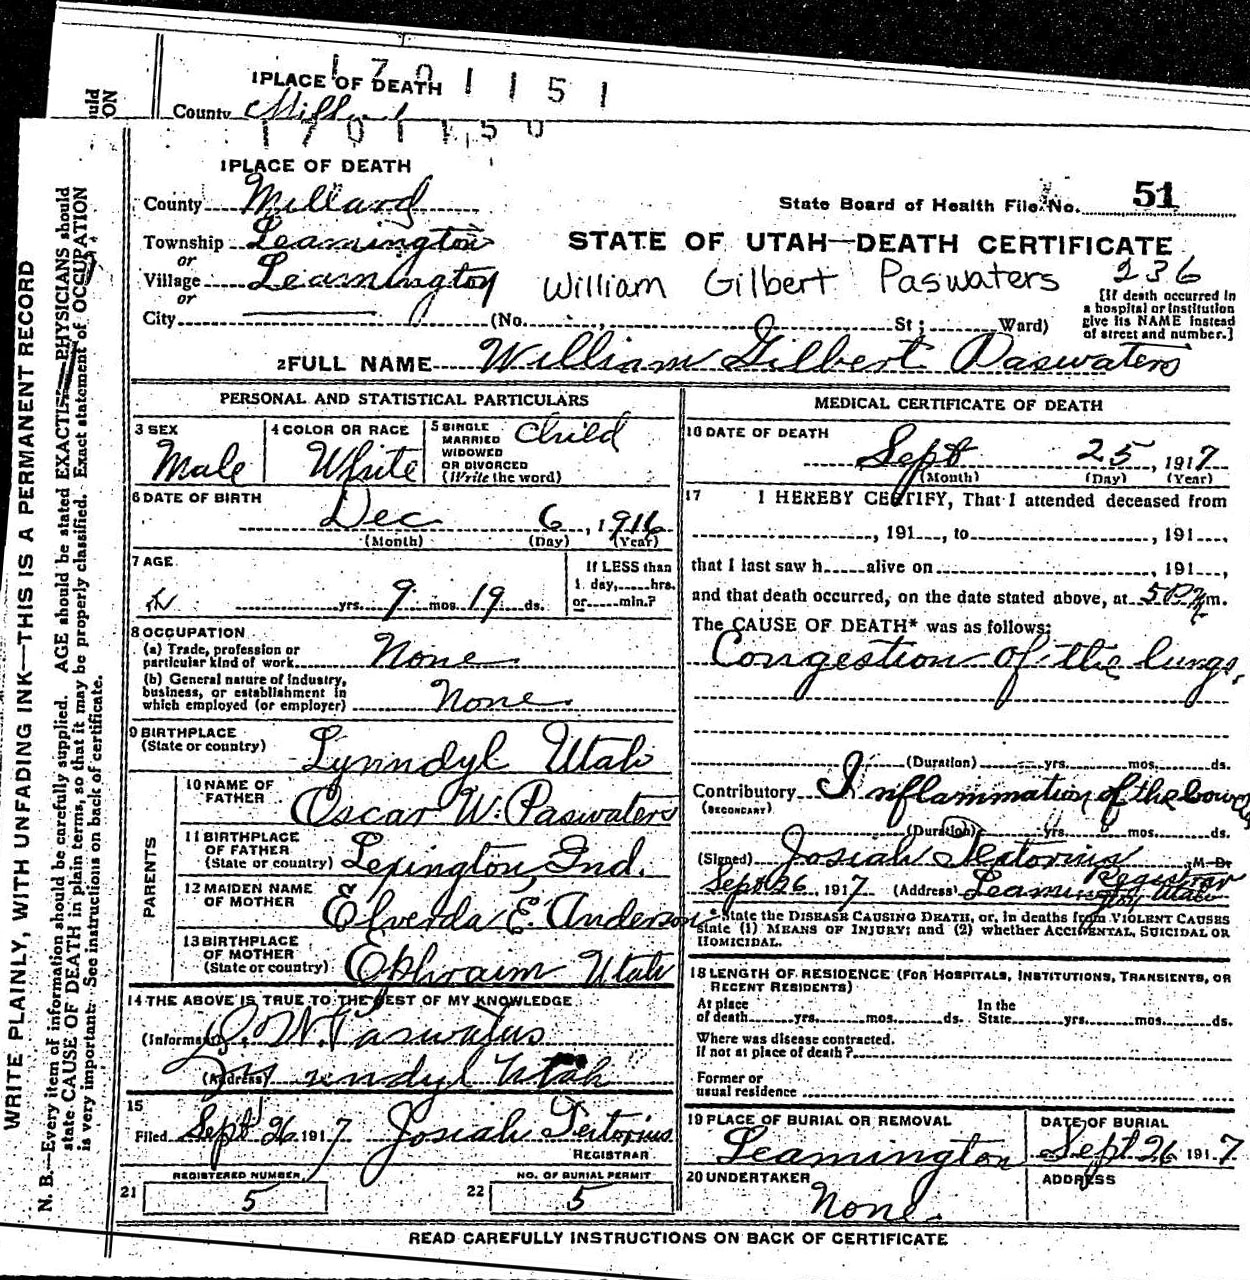 1 7 0 1 1 5 1
1 PLACE OF DEATH
County
1 7 0 1 1 5 0
uld
ON
WRITE PLAINLY, WITH UNFADING INK—THIS IS A PERMANENT RECORD
N. B.—Every item of information should be carefully supplied. AGE should be stated EXACTLY. PHYSICIANS should
state CAUSE OF DEATH in plain terms, so that it may be properly classified. Exact statement of OCCUPATION
is very important. See instructions on back of certificate.
1 PLACE OF DEATH
County Millard
State Board of Health File No. 51
Township Leamington
or
STATE OF UTAH—DEATH CERTIFICATE
Village Leamington
or
William Gilbert Paswaters 236
City (No. St; Ward)
[If death occurred in
a hospital or institution
give its NAME instead
of street and number.]
2 FULL NAME William Gilbert Paswaters
PERSONAL AND STATISTICAL PARTICULARS
3 SEX
Male
4 COLOR OR RACE
White
5 SINGLE
MARRIED
WIDOWED
OR DIVORCED
(Write the word)
Child
6 DATE OF BIRTH
Dec 6, 1916
(Month) (Day) (Year)
7 AGE
yrs. 9 mos. 19 ds.
If LESS than
1 day, hrs.
or min.?
8 OCCUPATION
(a) Trade, profession or
particular kind of work None
(b) General nature of industry,
business, or establishment in
which employed (or employer) None
9 BIRTHPLACE
(State or country) Lynndyl Utah
PARENTS
10 NAME OF
FATHER Oscar W. Paswaters
11 BIRTHPLACE
OF FATHER
(State or country) Lexington, Ind.
12 MAIDEN NAME
OF MOTHER Elverda E. Anderson
13 BIRTHPLACE
OF MOTHER
(State or country) Ephraim Utah
14 THE ABOVE IS TRUE TO THE BEST OF MY KNOWLEDGE
(Informant) O. W. Paswaters
(Address) Lynndyl Utah
15
Filed Sept 26 1917 Josiah Tertorius
REGISTRAR
REGISTERED NUMBER
21 5
NO. OF BURIAL PERMIT
22 5
MEDICAL CERTIFICATE OF DEATH
16 DATE OF DEATH
Sept 25, 1917
(Month) (Day) (Year)
17 I HEREBY CERTIFY, That I attended deceased from
, 191 , to , 191 ,
that I last saw h alive on , 191 ,
and that death occurred, on the date stated above, at 5 P.m.
The CAUSE OF DEATH* was as follows:
Congestion of the lungs.
(Duration) yrs. mos. ds.
Contributory Inflammation of the bowels
(SECONDARY)
(Duration) yrs. mos. ds.
(Signed) Josiah Tertorius M. D.
Registrar
Sept 26, 1917 (Address) Leamington Utah
*State the DISEASE CAUSING DEATH, or, in deaths from VIOLENT CAUSES
state (1) MEANS OF INJURY; and (2) whether ACCIDENTAL, SUICIDAL OR
HOMICIDAL.
18 LENGTH OF RESIDENCE (FOR HOSPITALS, INSTITUTIONS, TRANSIENTS, OR
RECENT RESIDENTS)
At place
of death yrs. mos. ds.
In the
State yrs. mos. ds.
Where was disease contracted.
if not at place of death?
Former or
usual residence
19 PLACE OF BURIAL OR REMOVAL
Leamington
DATE OF BURIAL
Sept. 26 1917
20 UNDERTAKER
None.
ADDRESS
READ CAREFULLY INSTRUCTIONS ON BACK OF CERTIFICATE